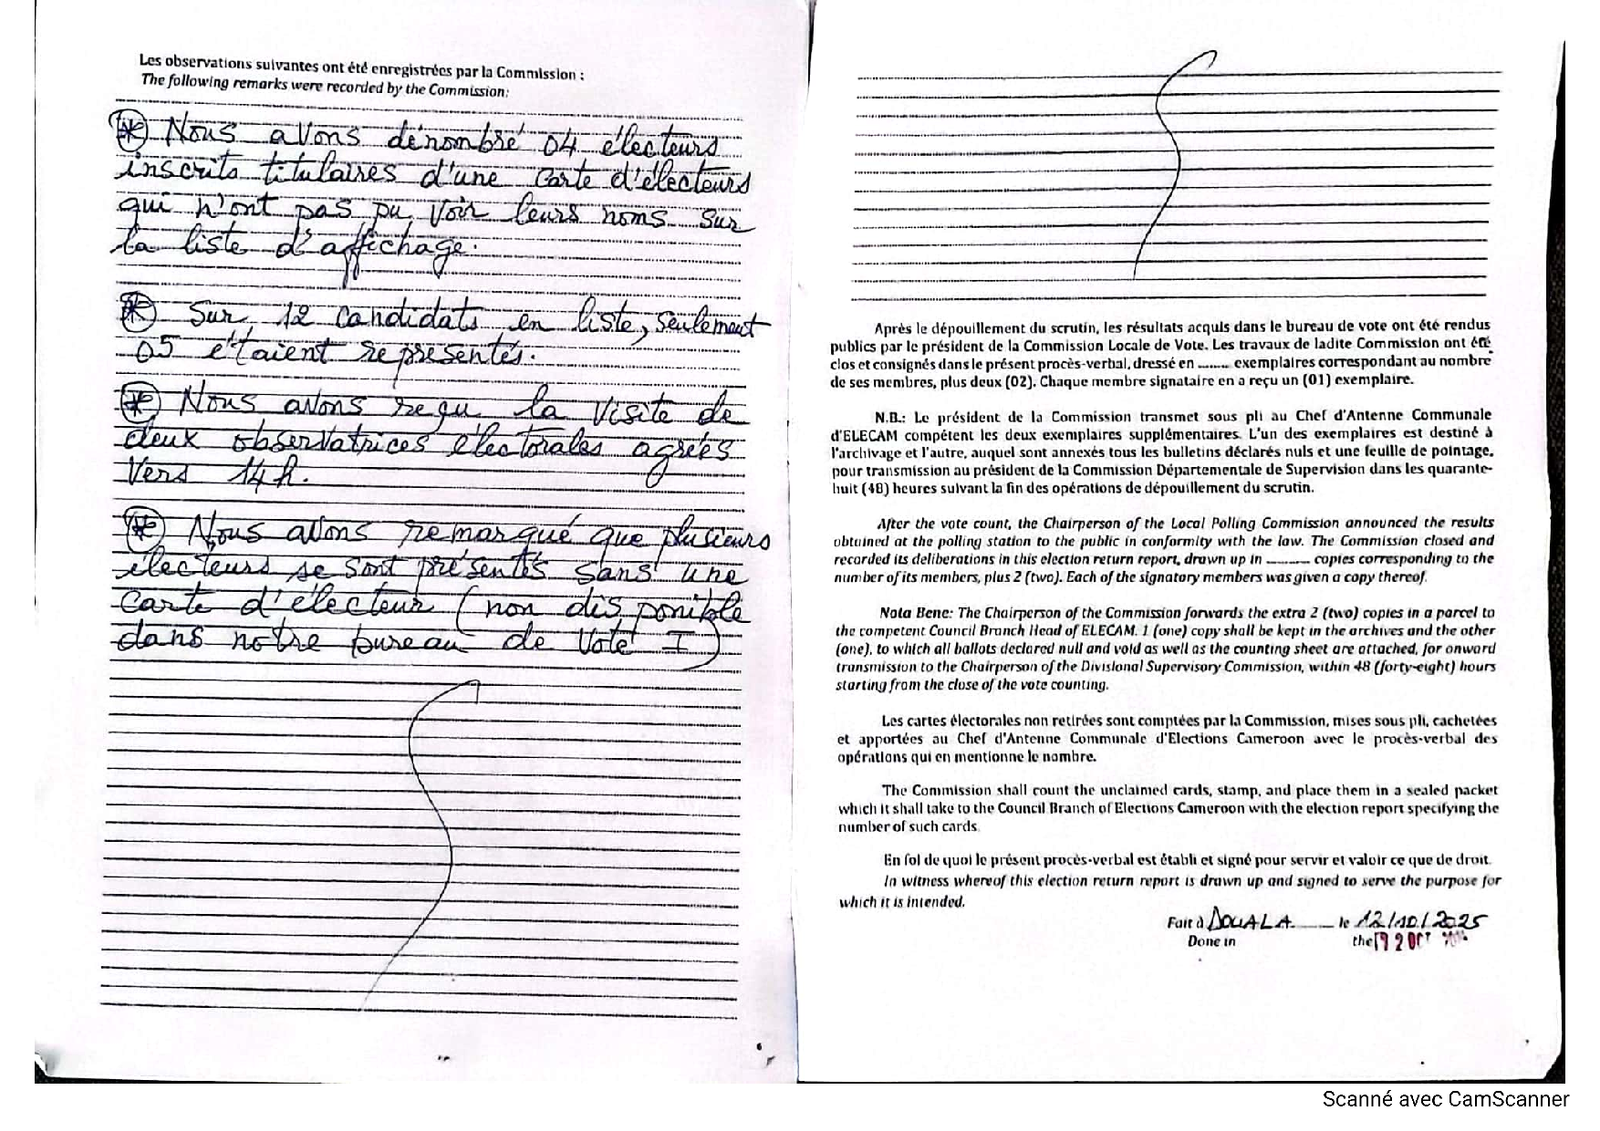 Les observations suivantes ont été enregistrées par la Commission :
The following remarks were recorded by the Commission:
* Nous avons dénombré 04 électeurs
inscrits titulaires d'une carte d'électeurs
qui n'ont pas pu voir leurs noms sur
la liste d'affichage.
* Sur 12 candidats en liste, seulement
05 étaient representés.
* Nous avons reçu la visite de
deux observatrices électorales agréés
vers 14h.
* Nous avons remarqué que plusieurs
électeurs se sont présentés sans une
carte d'électeur (non disponible
dans notre bureau de vote I)
Après le dépouillement du scrutin, les résultats acquis dans le bureau de vote ont été rendus
publics par le président de la Commission Locale de Vote. Les travaux de ladite Commission ont été
clos et consignés dans le présent procès-verbal, dressé en ........ exemplaires correspondant au nombre
de ses membres, plus deux (02). Chaque membre signataire en a reçu un (01) exemplaire.
N.B.: Le président de la Commission transmet sous pli au Chef d'Antenne Communale
d'ELECAM compétent les deux exemplaires supplémentaires. L'un des exemplaires est destiné à
l'archivage et l'autre, auquel sont annexés tous les bulletins déclarés nuls et une feuille de pointage,
pour transmission au président de la Commission Départementale de Supervision dans les quarante-
huit (48) heures suivant la fin des opérations de dépouillement du scrutin.
After the vote count, the Chairperson of the Local Polling Commission announced the results
obtained at the polling station to the public in conformity with the law. The Commission closed and
recorded its deliberations in this election return report, drawn up in .......... copies corresponding to the
number of its members, plus 2 (two). Each of the signatory members was given a copy thereof.
Nota Bene: The Chairperson of the Commission forwards the extra 2 (two) copies in a parcel to
the competent Council Branch Head of ELECAM. 1 (one) copy shall be kept in the archives and the other
(one), to which all ballots declared null and void as well as the counting sheet are attached, for onward
transmission to the Chairperson of the Divisional Supervisory Commission, within 48 (forty-eight) hours
starting from the close of the vote counting.
Les cartes électorales non retirées sont comptées par la Commission, mises sous pli, cachetées
et apportées au Chef d'Antenne Communale d'Elections Cameroon avec le procès-verbal des
opérations qui en mentionne le nombre.
The Commission shall count the unclaimed cards, stamp, and place them in a sealed packet
which it shall take to the Council Branch of Elections Cameroon with the election report specifying the
number of such cards.
En foi de quoi le présent procès-verbal est établi et signé pour servir et valoir ce que de droit.
In witness whereof this election return report is drawn up and signed to serve the purpose for
which it is intended.
Fait à DOUALA le 12/10/2025
Done in the OCT
Scanné avec CamScanner